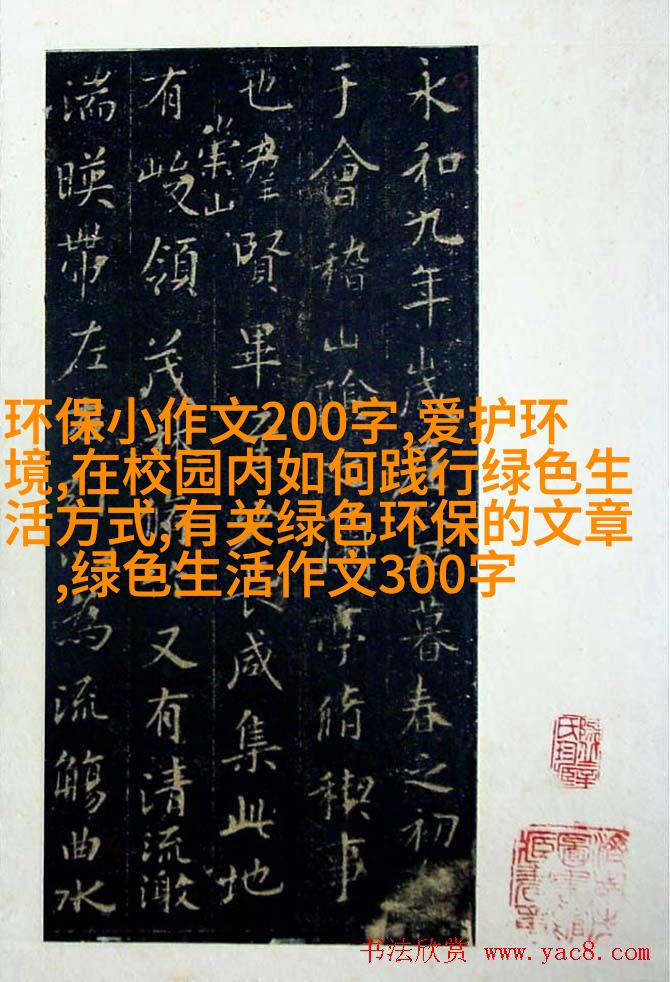 环保小作文200字,爱护环
境,在校园内如何践行绿色生
活方式,有关绿色环保的文章
,绿色生活作文300字
永和九年歲暮春之初
于會稽山陰亭脩稧事
也羣賢畢長咸集此地
崇山
有峻領茂又有清流激
湍暎帶左為流觴曲水
书法欣赏 www.yac8.com